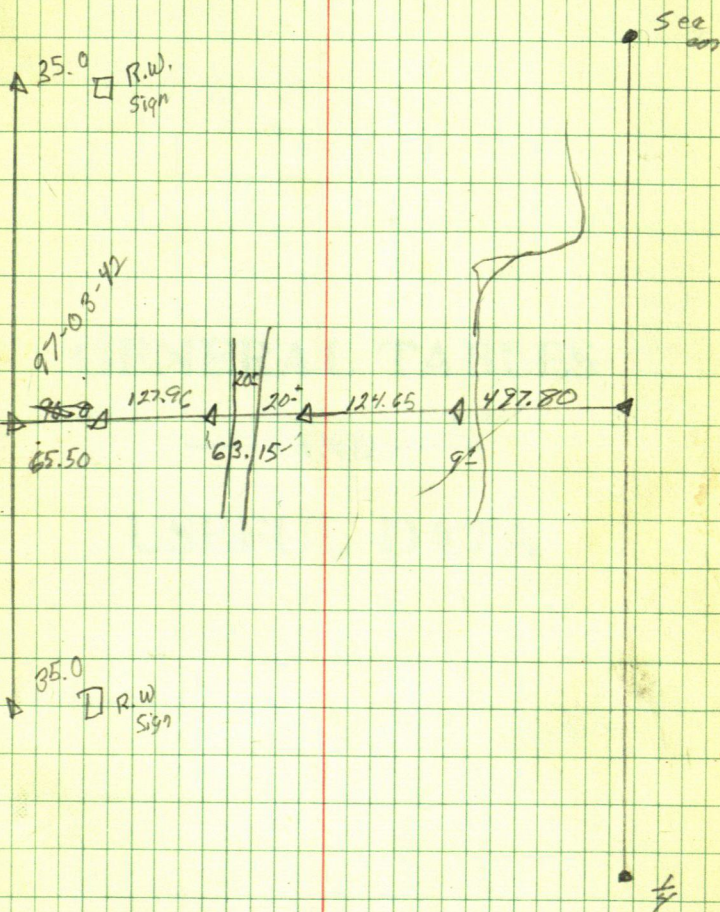 Sec
35.0 R.W.
Sign
97-03-42
127.96 20± 20± 124.65 497.80
65.50 63.15 9±
35.0 R.W
Sign
1/4